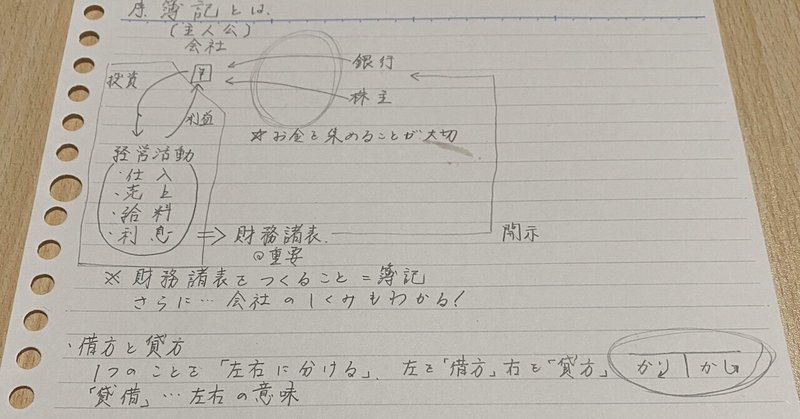 簿記とは、
(主人公)
会社
銀行
投資
¥
株主
利益
☆お金を集めることが大切
経営活動
・仕入
・売上
・給料
・利息 ⇒ 財務諸表
開示
◎重要
※財務諸表をつくること=簿記
さらに…会社のしくみもわかる!
・借方と貸方
1つのことを「左右に分ける」、左を「借方」右を「貸方」
かり かし
「貸借」…左右の意味